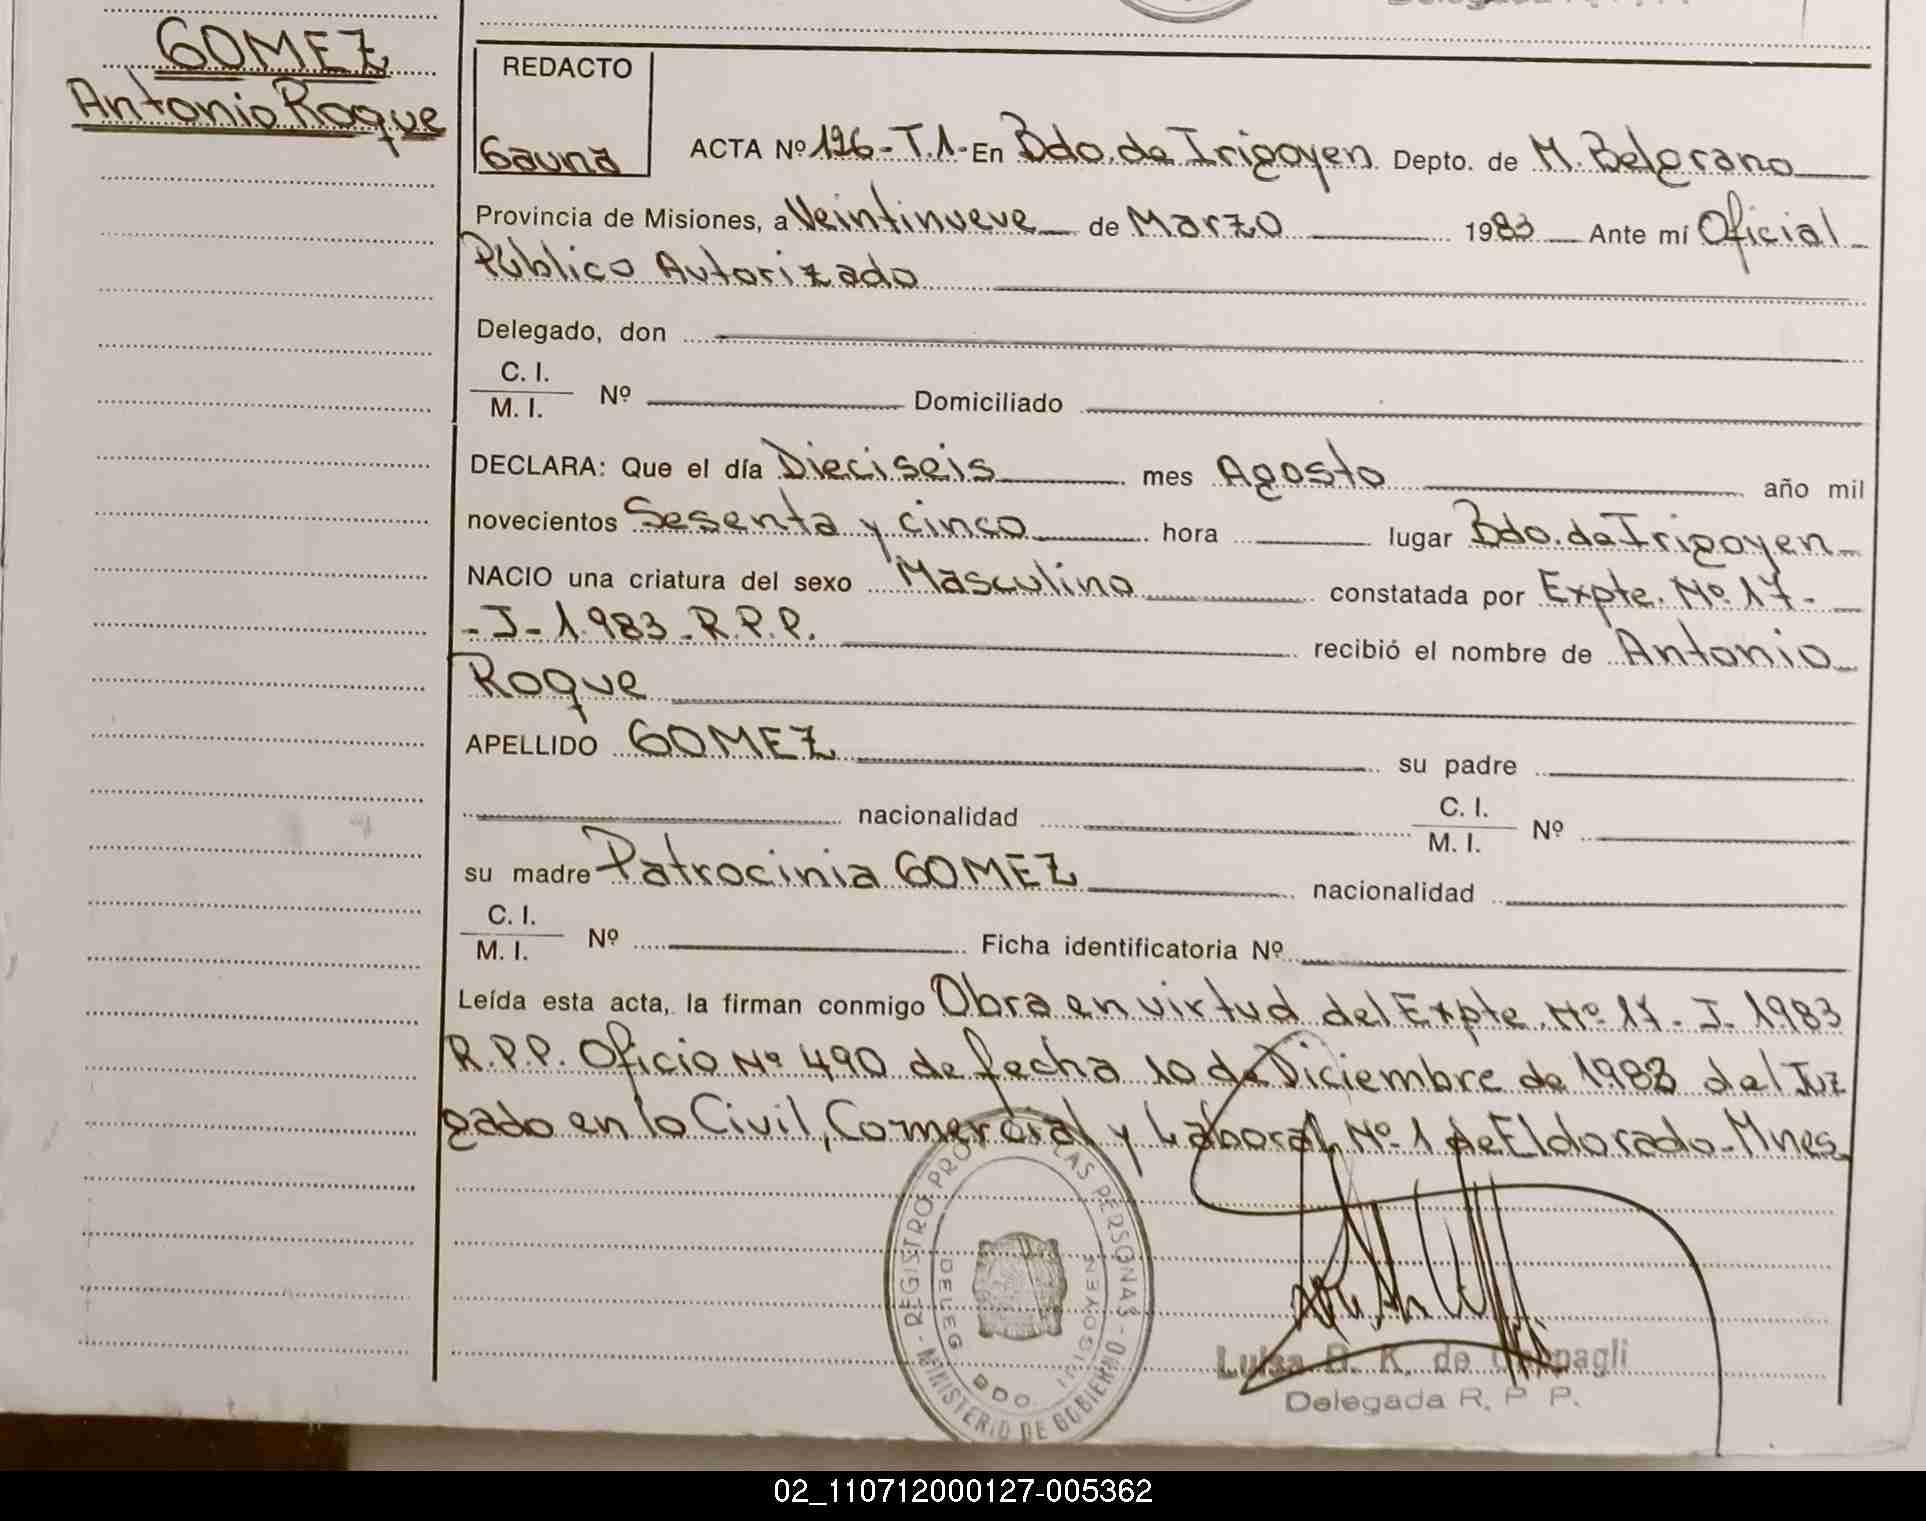 GOMEZ
Antonio Roque
REDACTO
Gauna
ACTA Nº 126-T.1- En Bdo. de Irigoyen Depto. de M. Belgrano
Provincia de Misiones, a Veintinueve de Marzo 1983 Ante mí Oficial
Público Autorizado
Delegado, don
C. I.
M. I. Nº Domiciliado
DECLARA: Que el día Dieciseis mes Agosto año mil
novecientos Sesenta y cinco hora lugar Bdo. de Irigoyen
NACIO una criatura del sexo Masculino constatada por Expte. Nº 17-
-J-1.983-R.P.P. recibió el nombre de Antonio
Roque
APELLIDO GOMEZ su padre
nacionalidad C. I.
M. I. Nº
su madre Patrocinia GOMEZ nacionalidad
C. I.
M. I. Nº Ficha identificatoria Nº
Leída esta acta, la firman conmigo Obra en virtud del Expte. Nº 17-J-1983
R.P.P. Oficio Nº 490 de fecha 10 de Diciembre de 1.982 del Juz
gado en lo Civil, Comercial y Laboral Nº 1 de Eldorado-Mnes
REGISTRO PROV LAS PERSONAS - MINISTERIO DE GOBIERNO
DELEG BDO IRIGOYEN
Luisa B. K. de
Delegada R. P. P.
02_110712000127-005362